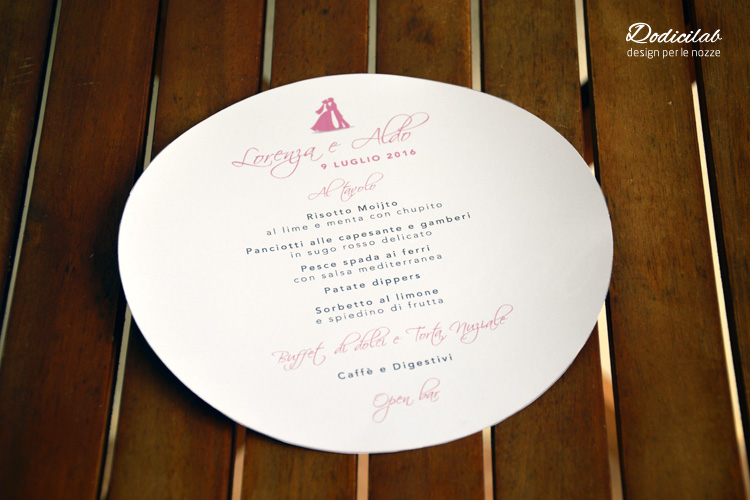 Dodicilab
design per le nozze
Lorenza e Aldo
9 LUGLIO 2016
Al tavolo
Risotto Moijto
al lime e menta con chupito
Panciotti alle capesante e gamberi
in sugo rosso delicato
Pesce spada ai ferri
con salsa mediterranea
Patate dippers
Sorbetto al limone
e spiedino di frutta
Buffet di dolci e Torta Nuziale
Caffè e Digestivi
Open bar